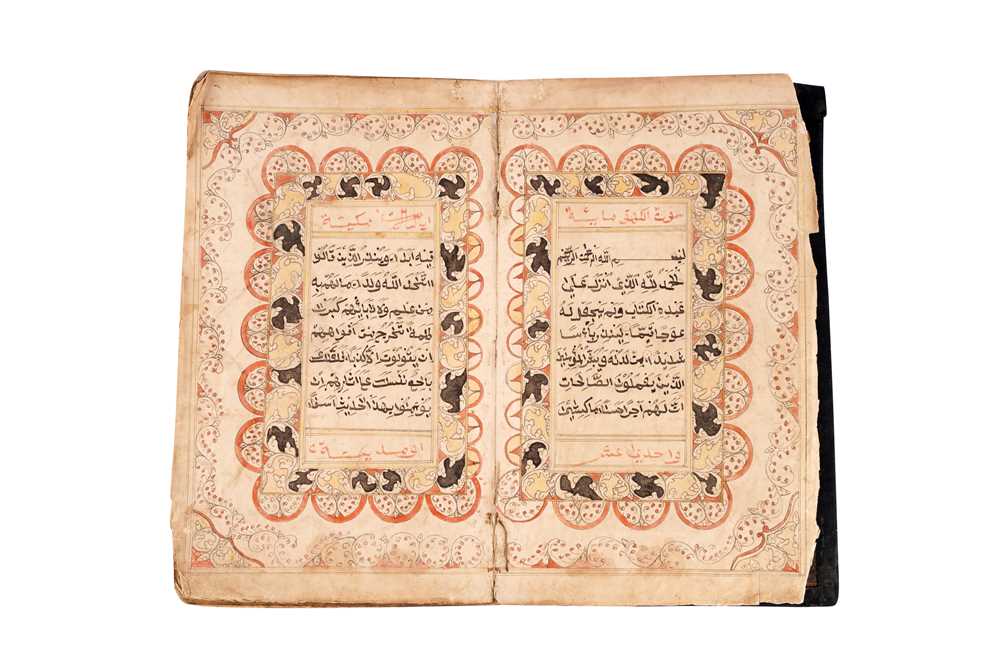 سورة الكهف ماية
بسم الله الرحمن الرحيم
الحمد لله الذي انزل على
عبده الكتاب ولم يجعل له
عوجا قيما لينذر بأسا
شديدا من لدنه ويبشر المؤمنين
الذين يعملون الصالحات
ان لهم اجرا حسنا ماكثين
واحدى عشر
مكية
فيه ابدا وينذر الذين قالوا
اتخذ الله ولدا ما لهم به
من علم ولا لابائهم كبرت
كلمة تخرج من افواههم
ان يقولون الا كذبا فلعلك
باخع نفسك على اثارهم ان
يؤمنوا بهذا الحديث اسفا